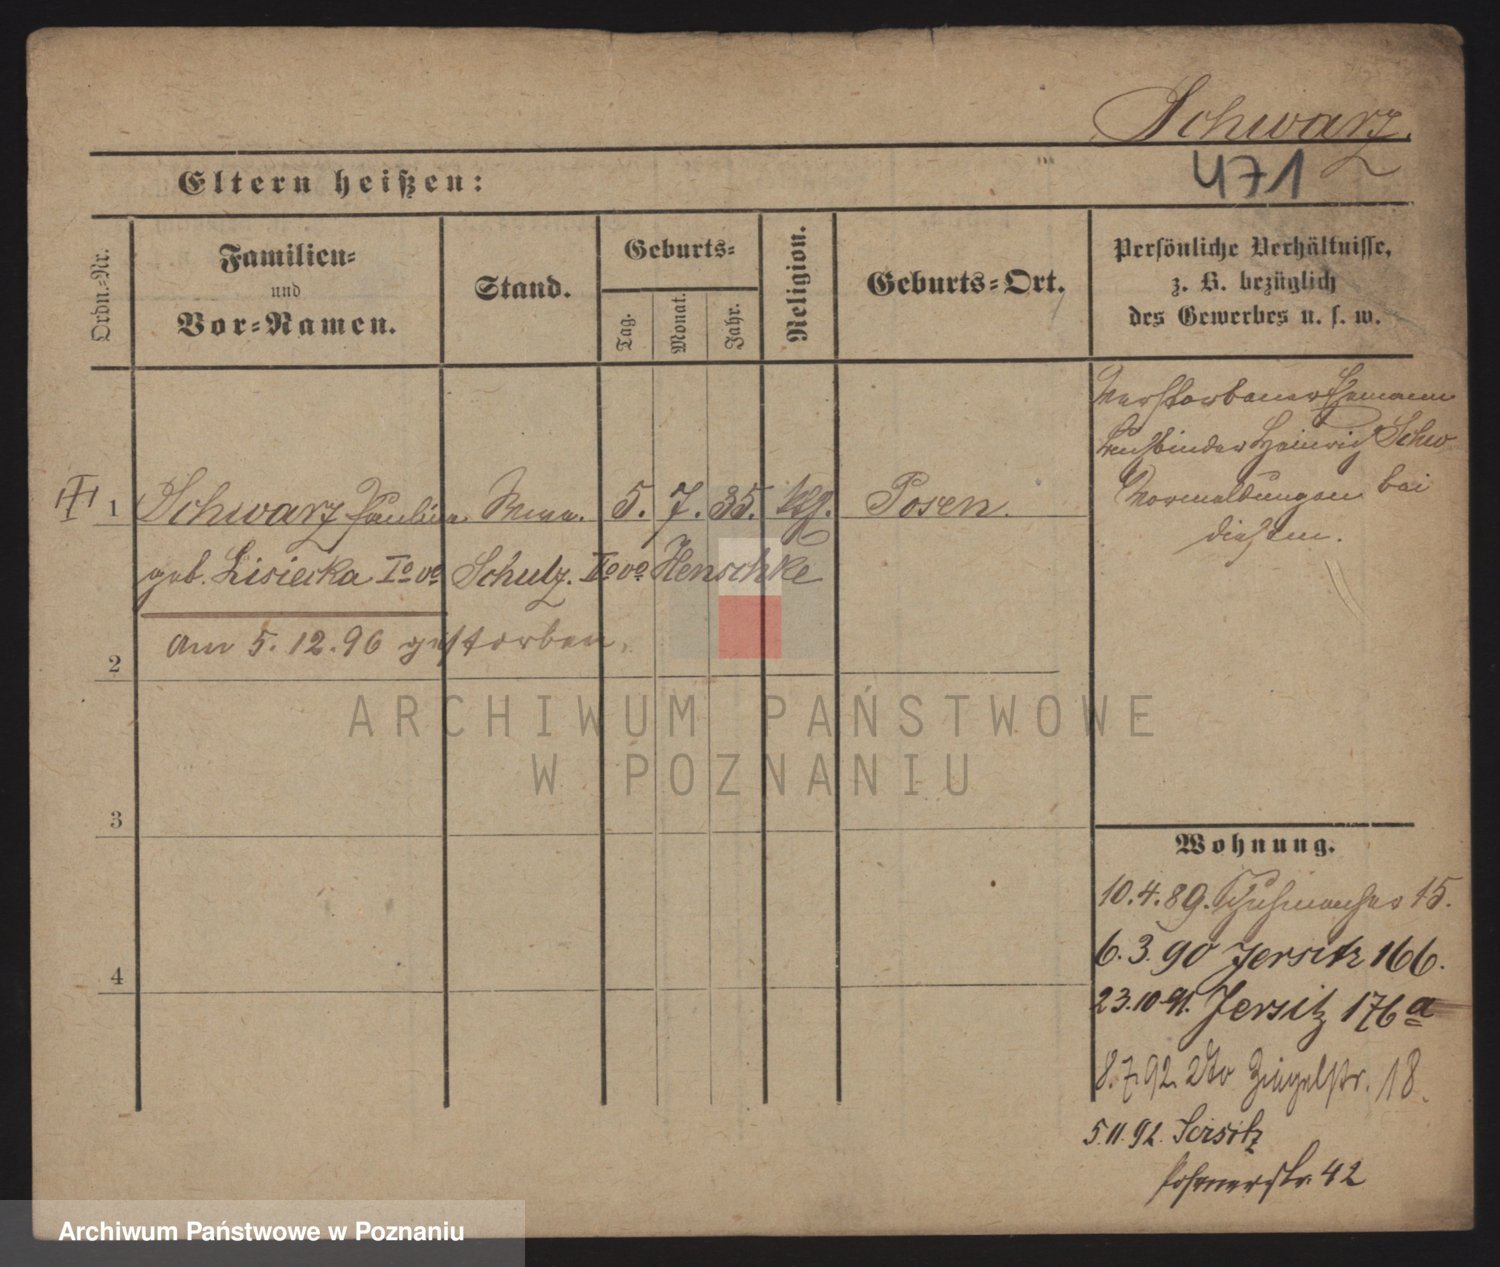 Schwarz.
471
Eltern heißen:
Ordn.-Nr.
Familien-
und
Vor-Namen.
Stand.
Geburts-
Tag.
Monat.
Jahr.
Religion.
Geburts-Ort.
Persönliche Verhältnisse,
z. B. bezüglich
des Gewerbes u. s. w.
Verstorbener Ehemann
Heinrich Schw
Vormeldungen bei
diesem.
1
Schwarz Pauline
Wwe.
5. 7. 35.
Posen.
geb. Lisiecka Io vo Schulz. IIo vo Henschke
am 5.12.96 gestorben.
2
3
4
Wohnung.
10.4.89. 15.
6.3.90 Jersitz 166.
23.10.91. Jersitz 176a
8.7.92 dto Ziegelstr. 18.
5.11.92. Jersitz
Posenerstr. 42
ARCHIWUM PAŃSTWOWE
W POZNANIU
Archiwum Państwowe w Poznaniu